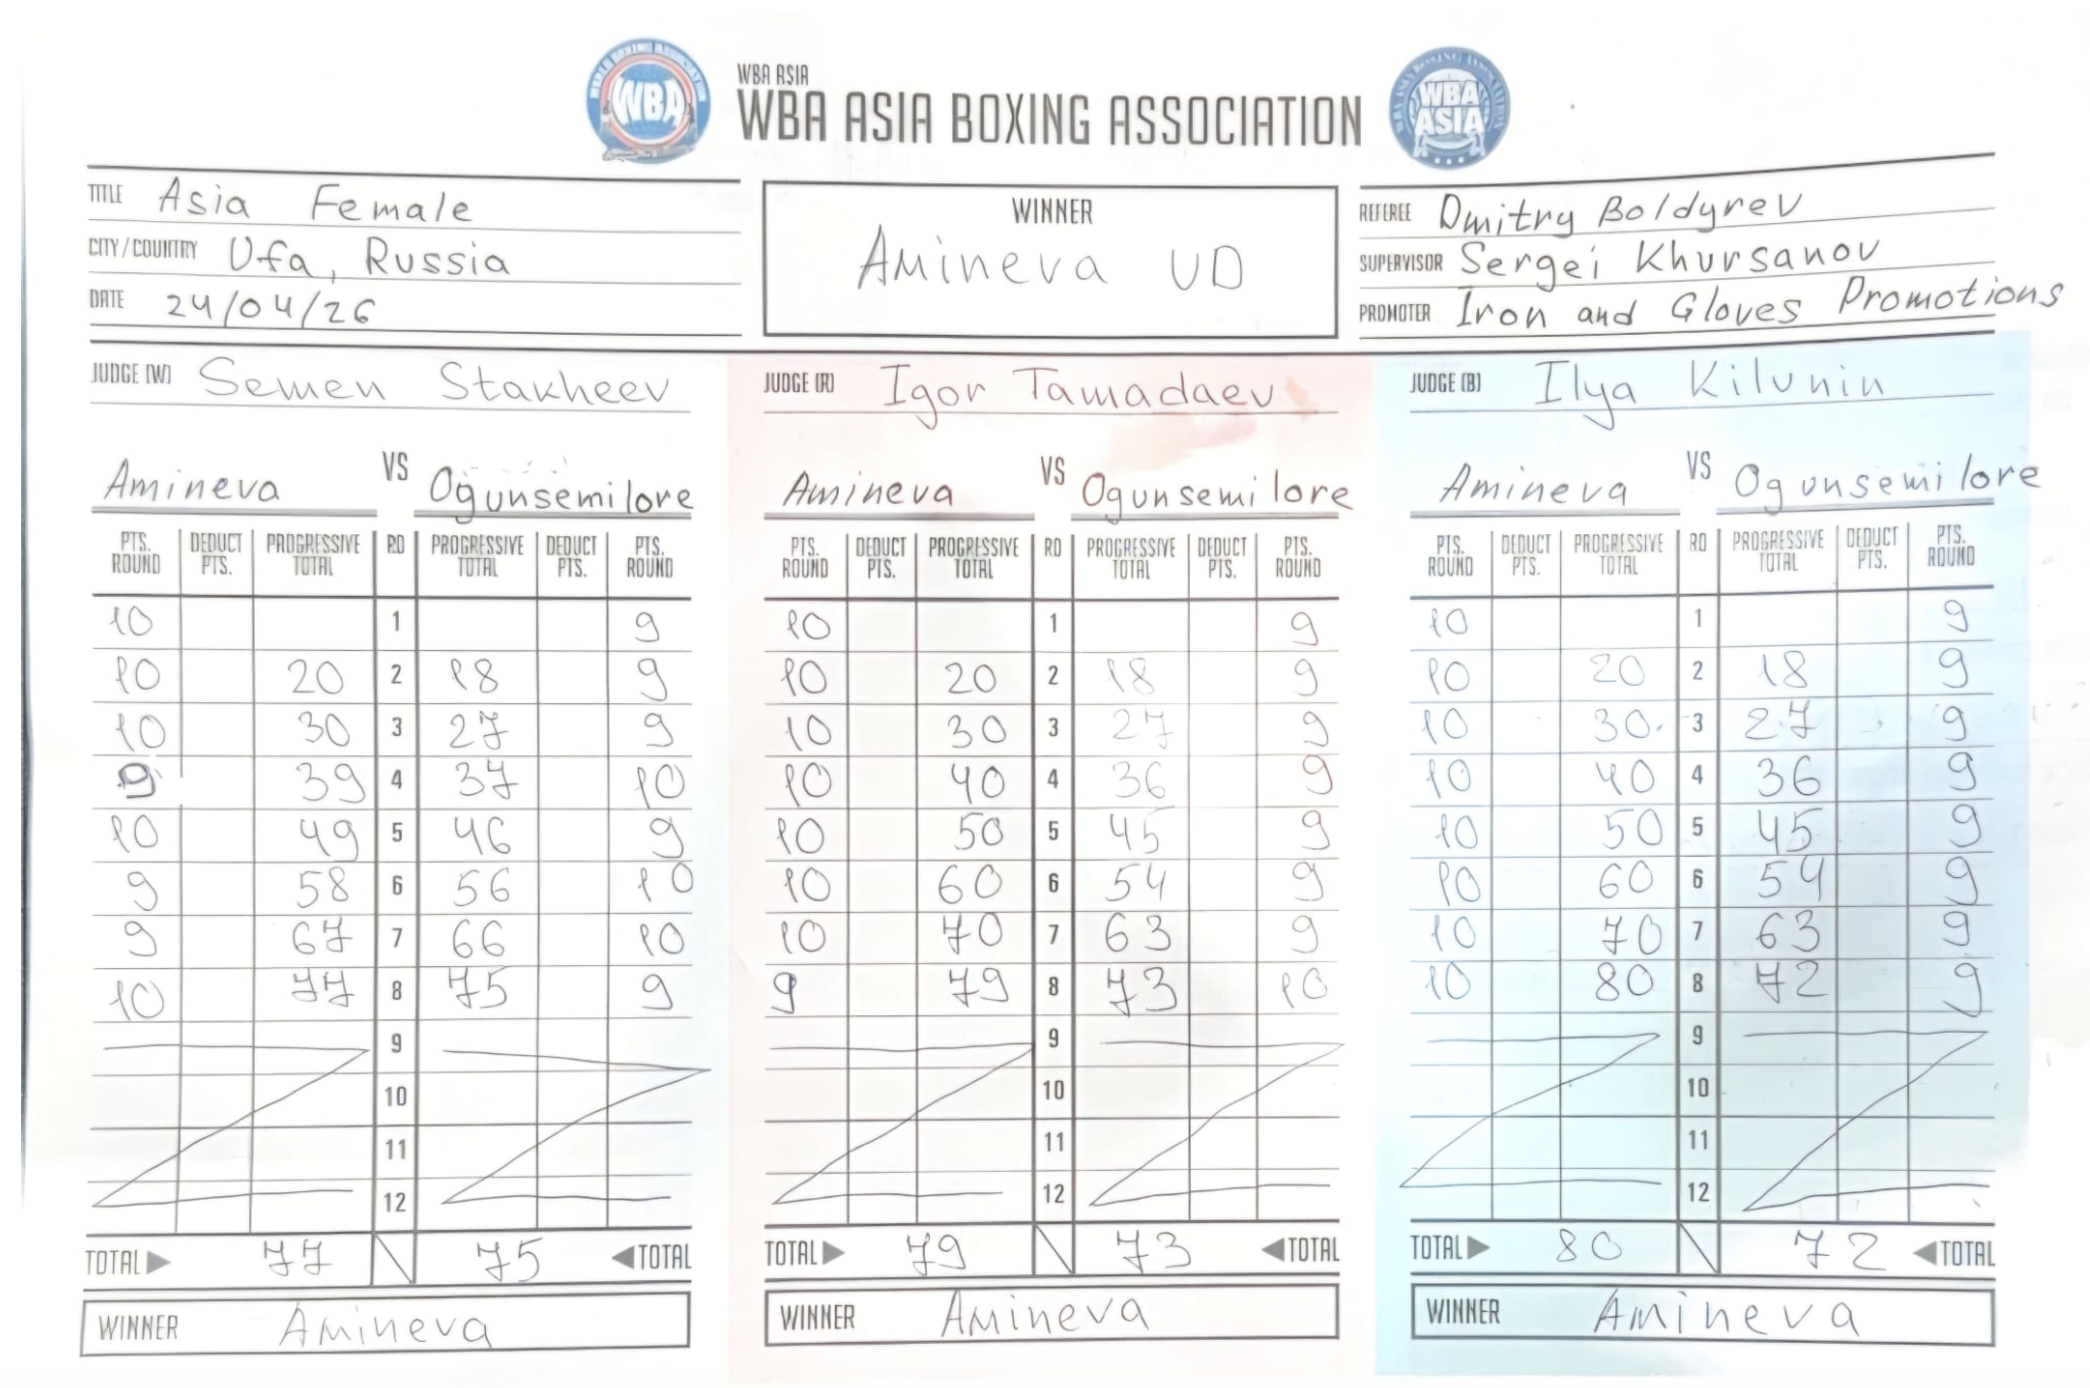 WBA
WBA ASIA
WBA ASIA BOXING ASSOCIATION
WBA ASIA
TITLE Asia Female
CITY/COUNTRY Ufa, Russia
DATE 24/04/26
WINNER
Amineva UD
REFEREE Dmitry Boldyrev
SUPERVISOR Sergei Khursanov
PROMOTER Iron and Gloves Promotions
JUDGE (W) Semen Stakheev
Amineva VS Ogunsemilore
PTS. ROUND DEDUCT PTS. PROGRESSIVE TOTAL RD PROGRESSIVE TOTAL DEDUCT PTS. PTS. ROUND
10 1 9
10 20 2 18 9
10 30 3 27 9
9 39 4 37 10
10 49 5 46 9
9 58 6 56 10
9 67 7 66 10
10 77 8 75 9
9
10
11
12
TOTAL 77 75 TOTAL
WINNER Amineva
JUDGE (R) Igor Tamadaev
Amineva VS Ogunsemilore
PTS. ROUND DEDUCT PTS. PROGRESSIVE TOTAL RD PROGRESSIVE TOTAL DEDUCT PTS. PTS. ROUND
10 1 9
10 20 2 18 9
10 30 3 27 9
10 40 4 36 9
10 50 5 45 9
10 60 6 54 9
10 70 7 63 9
9 79 8 73 10
9
10
11
12
TOTAL 79 73 TOTAL
WINNER Amineva
JUDGE (B) Ilya Kilunin
Amineva VS Ogunsemilore
PTS. ROUND DEDUCT PTS. PROGRESSIVE TOTAL RD PROGRESSIVE TOTAL DEDUCT PTS. PTS. ROUND
10 1 9
10 20 2 18 9
10 30 3 27 9
10 40 4 36 9
10 50 5 45 9
10 60 6 54 9
10 70 7 63 9
10 80 8 72 9
9
10
11
12
TOTAL 80 72 TOTAL
WINNER Amineva